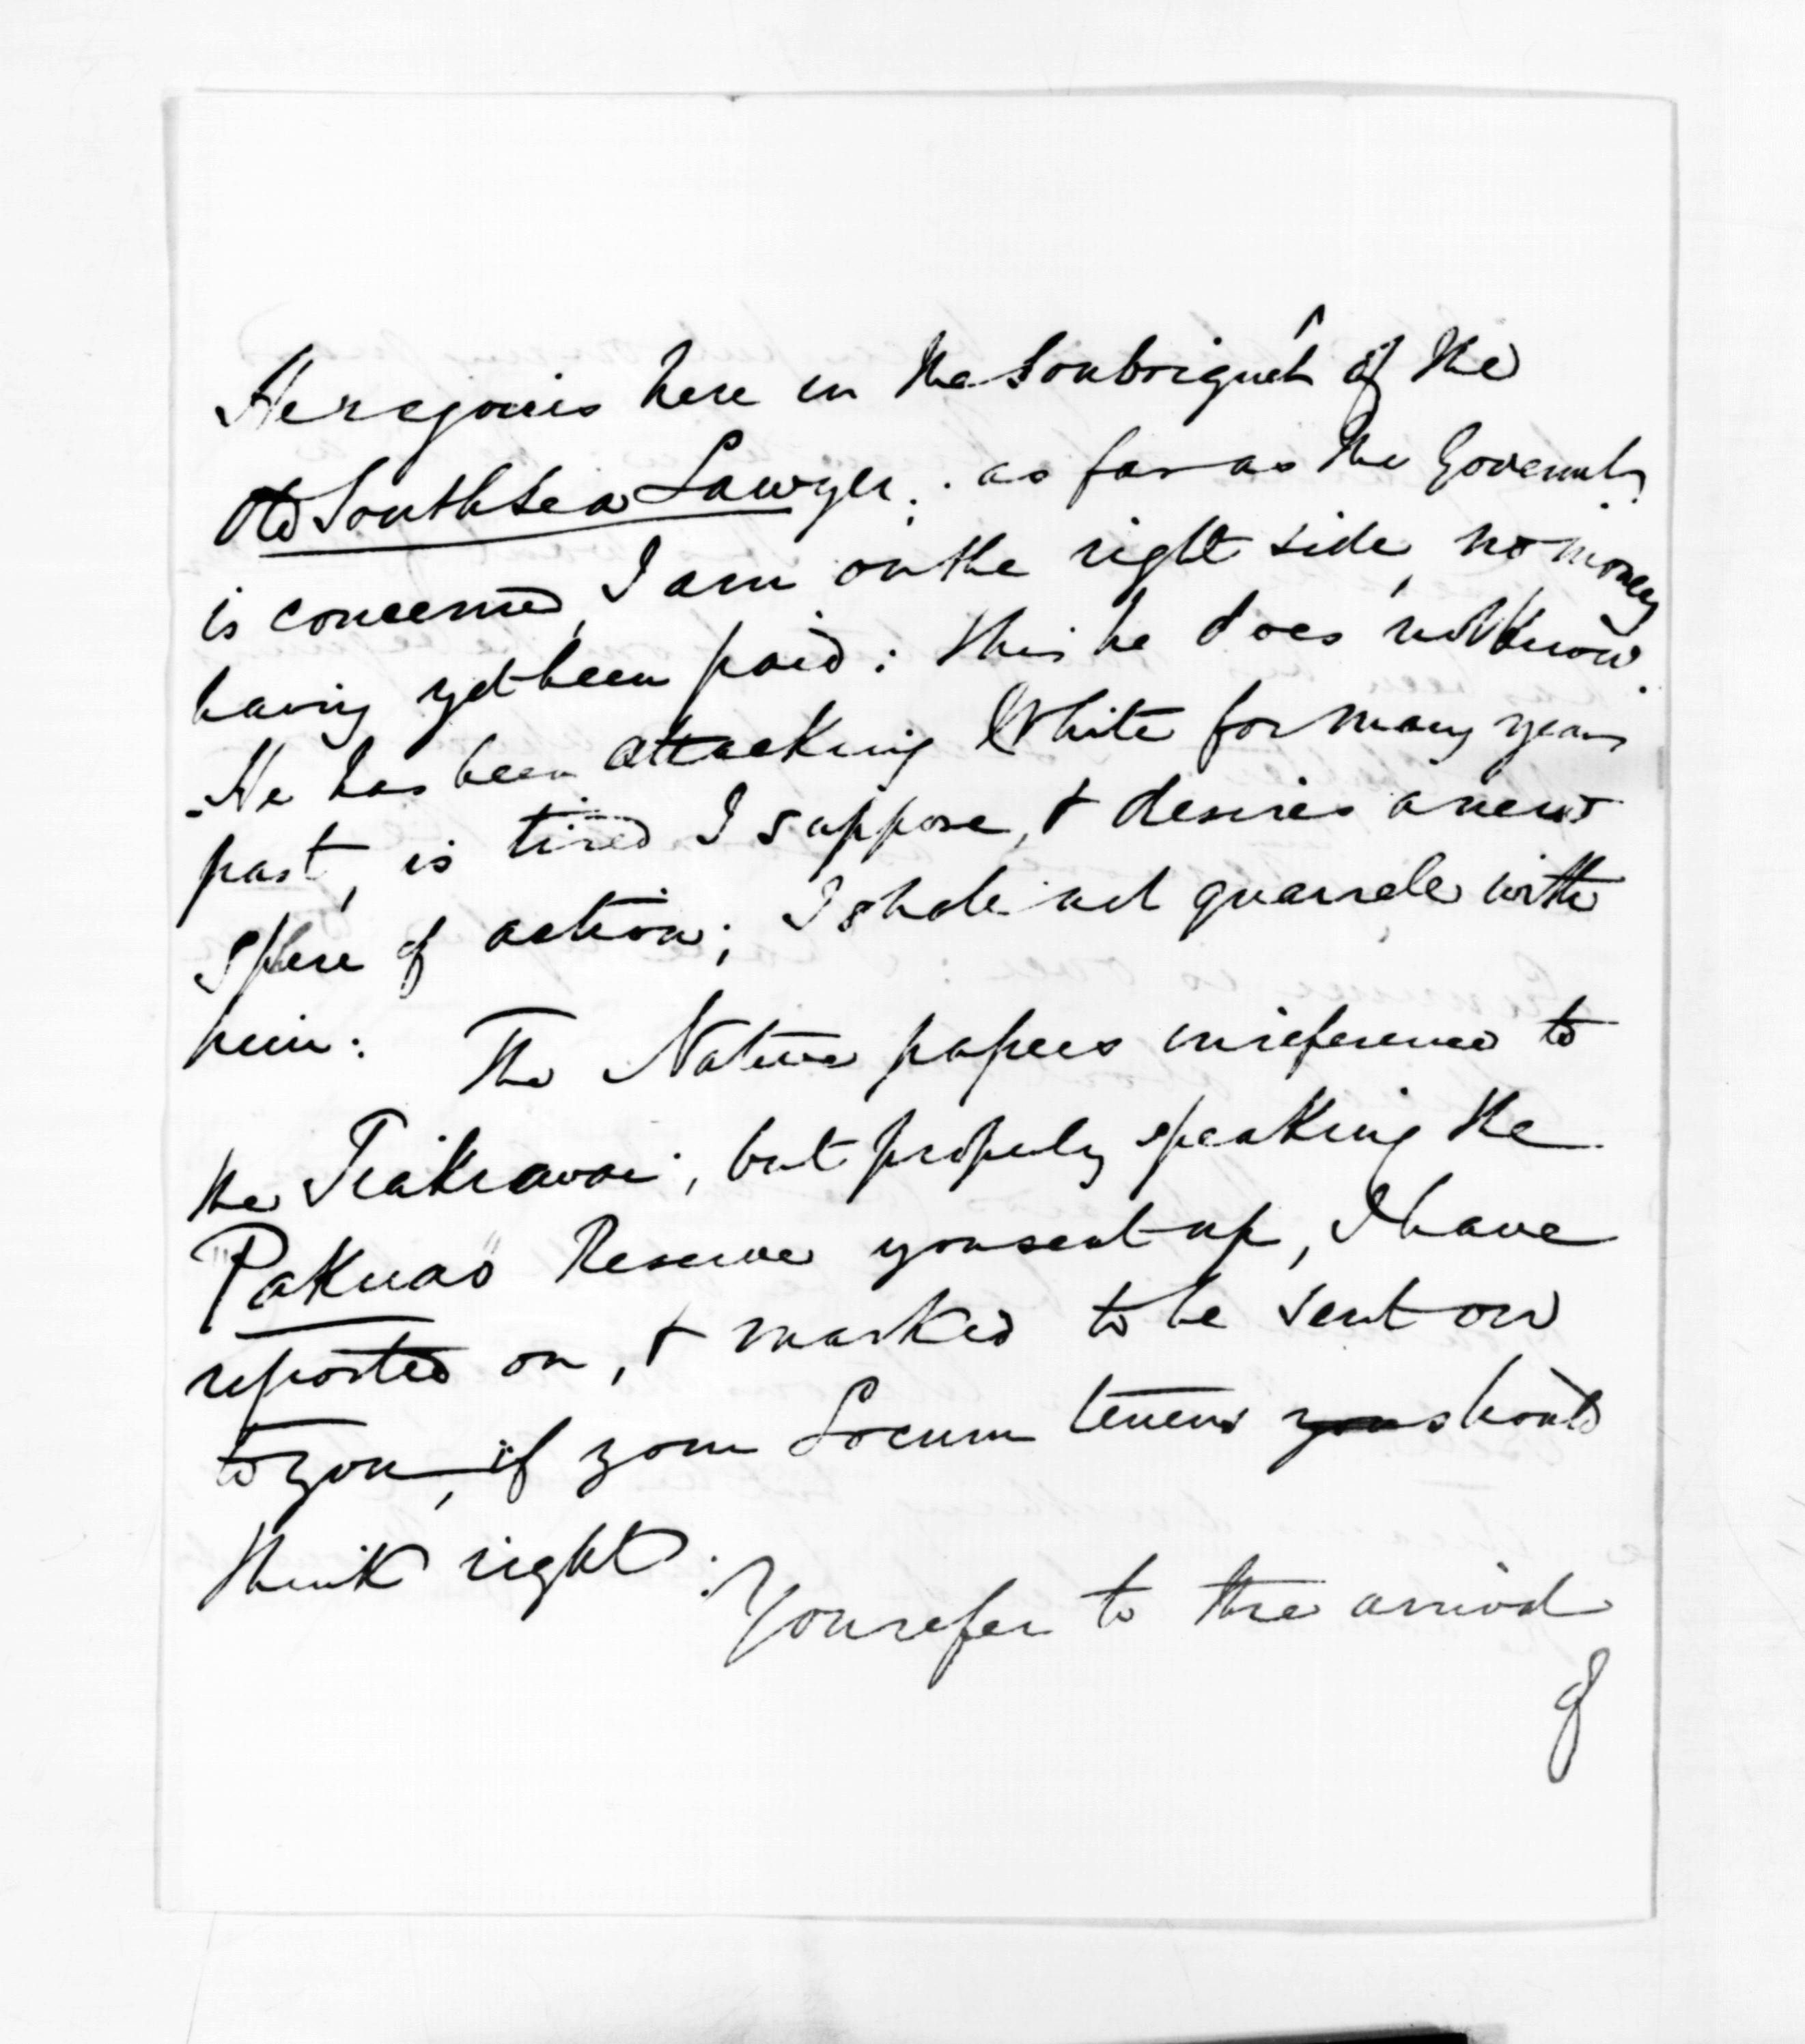 He rejoices here in the Soubriquet of the
Old South Sea Lawyer; as far as the Governmt
is concerned, I am on the right side, no money
having yet been paid: this he does not know.
He has been attacking White for many years
past, is tired I suppose, & desires a new
sphere of action; I shall not quarrele with
him: The Native papers in reference to
the, but properly speaking the
"Pakuao" Reserve you sent up, I have
reported on, & marked to be sent on
to you, if your Locum tenens you should
think right. You refer to the arrival
of